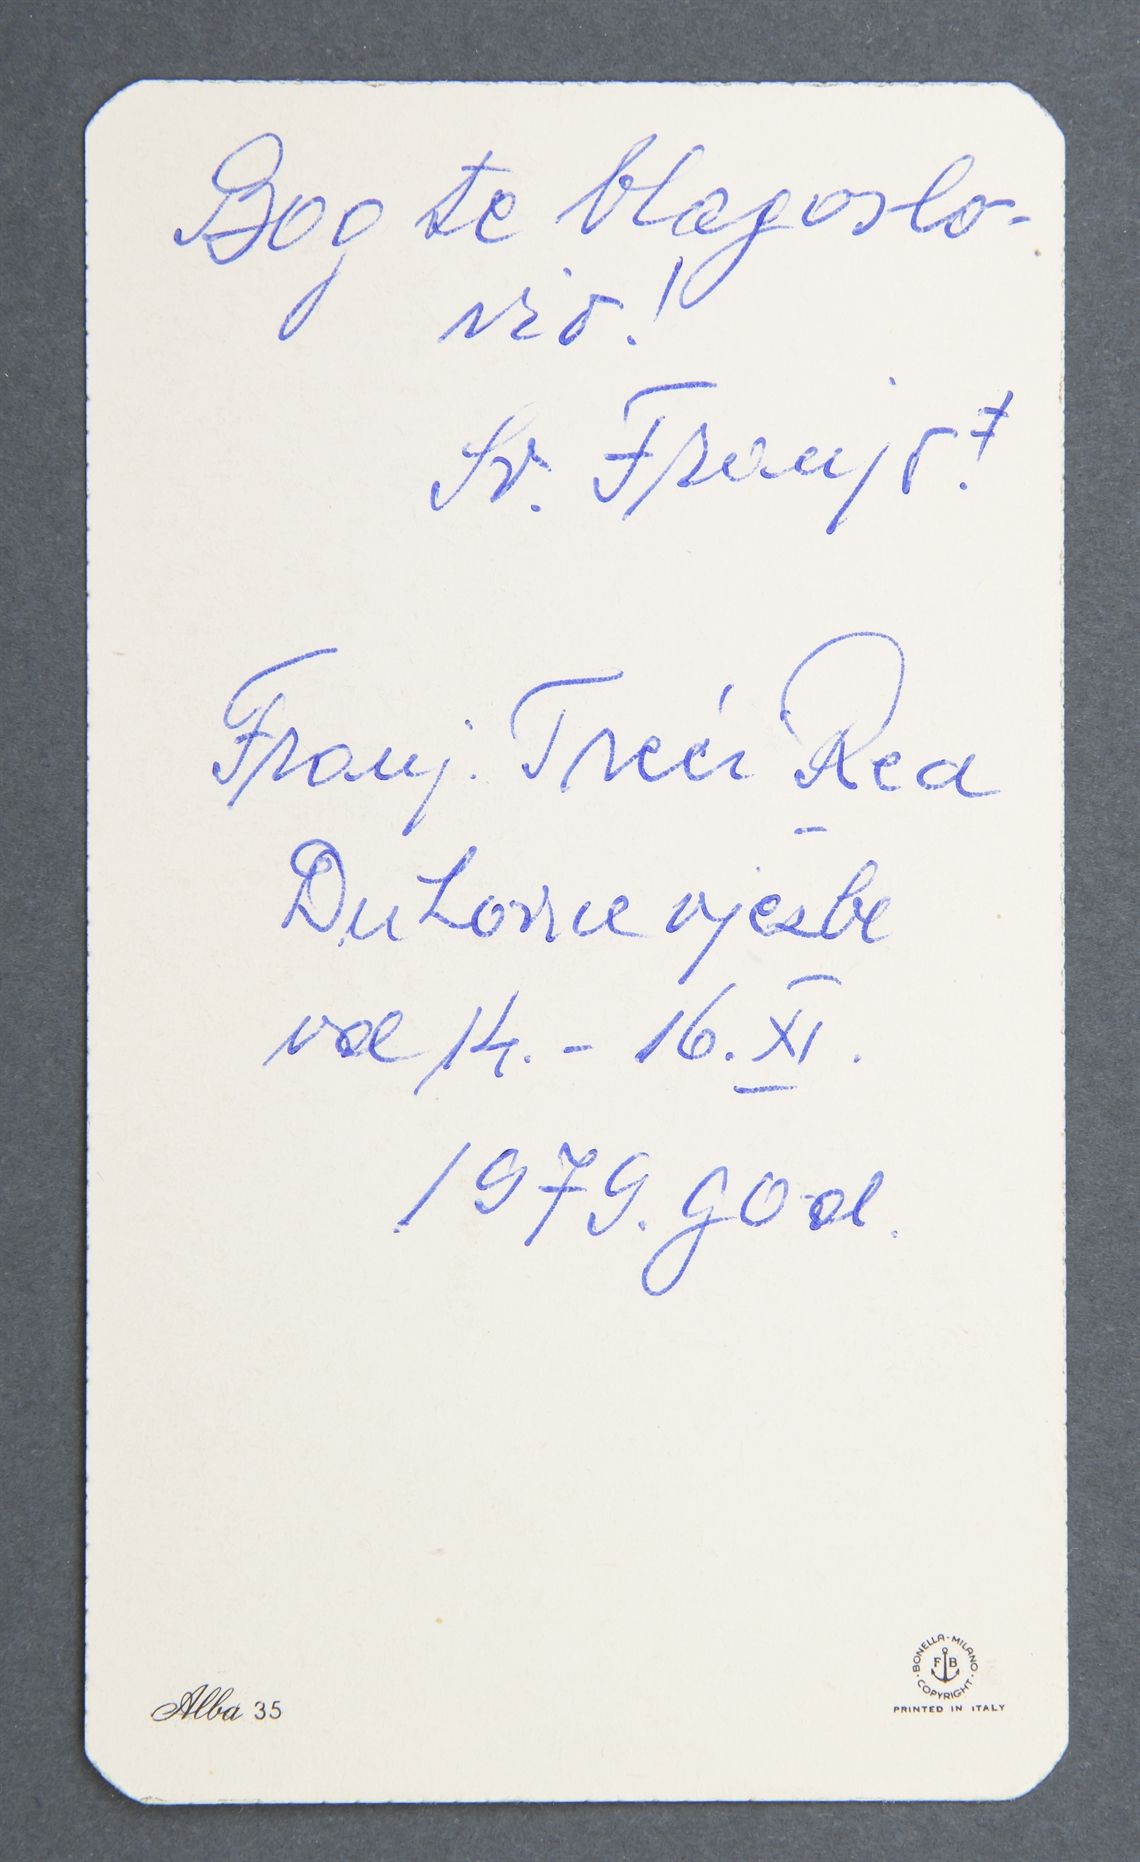 Bog te blagoslo-
vio!
Sv. Franjo!
Franj. Treći Red
Duhovne vježbe
od 14. - 16. XI.
1979. god.
Alba 35
BONELLA - MILANO
F B
COPYRIGHT
PRINTED IN ITALY